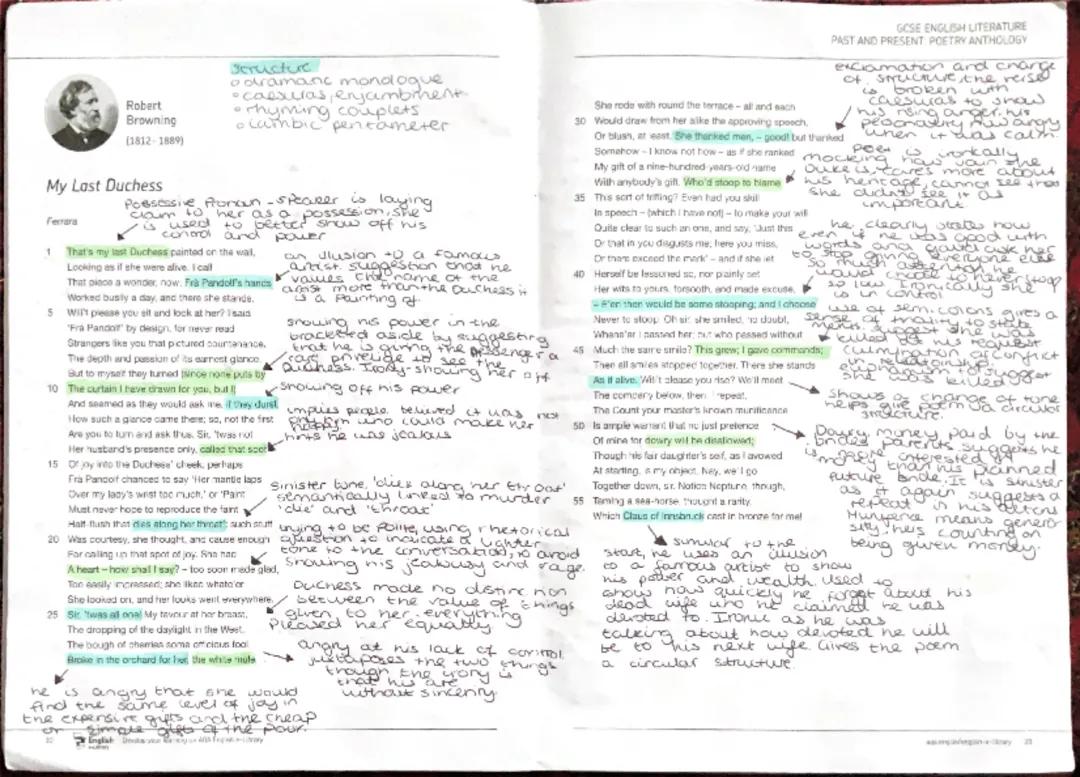 GCSE ENGLISH LITERATURE
PAST AND PRESENT: POETRY ANTHOLOGY
Structure
dramatic monologue
caesuras, enjambment
rhyming couplets
iambic pentameter
Robert
Browning
(1812 - 1889)
My Last Duchess
Possessive Pronoun - speaker is laying
claim to her as a possession, she
is used to better show off his
control and power
Ferrara
1 That's my last Duchess painted on the wall,
Looking as if she were alive. I call
That piece a wonder, now: Frà Pandolf's hands
Worked busily a day, and there she stands.
an illusion to a famous
artist. suggestion that he
values the name of the
artist more than the Duchess it
is a painting of
5 Will't please you sit and look at her? I said
'Frà Pandolf' by design, for never read
Strangers like you that pictured countenance,
The depth and passion of its earnest glance,
But to myself they turned (since none puts by
10 The curtain I have drawn for you, but I)
And seemed as they would ask me, if they durst,
How such a glance came there; so, not the first
Are you to turn and ask thus. Sir, 'twas not
Her husband's presence only, called that spot
showing his power in the
bracketed aside by suggesting
that he is giving the
rare privilege to see the
Duchess. Irony - showing her off
showing off his power
implies people believed it was not
only him who could make her
happy.
hints he was jealous
15 Of joy into the Duchess' cheek: perhaps
Frà Pandolf chanced to say 'Her mantle laps
Over my lady's wrist too much,' or 'Paint
Must never hope to reproduce the faint
Half-flush that dies along her throat': such stuff
20 Was courtesy, she thought, and cause enough
For calling up that spot of joy. She had
A heart – how shall I say? – too soon made glad,
Too easily impressed; she liked whate'er
She looked on, and her looks went everywhere.
25 Sir, 'twas all one! My favour at her breast,
The dropping of the daylight in the West,
The bough of cherries some officious fool
Broke in the orchard for her, the white mule
Sinister tone, 'dies along her throat'
semantically linked to murder
'die' and 'throat'
trying to be polite, using rhetorical
question to indicate a lighter
tone to the conversation, to avoid
showing his jealousy and rage.
Duchess made no distinction
between the value of things
given to her - everything
pleased her equally
angry at his lack of control.
juxtaposes the two things
though the irony is
that his are
without sincerity.
he is angry that she would
find the same level of joy in
the expensive gifts and the cheap
or simple gifts of the poor.
She rode with round the terrace – all and each
30 Would draw from her alike the approving speech,
Or blush, at least. She thanked men, – good! but thanked
Somehow – I know not how – as if she ranked
My gift of a nine-hundred-years-old name
With anybody's gift. Who'd stoop to blame
35 This sort of trifling? Even had you skill
In speech – (which I have not) – to make your will
Quite clear to such an one, and say, 'Just this
Or that in you disgusts me; here you miss,
Or there exceed the mark' – and if she let
40 Herself be lessoned so, nor plainly set
Her wits to yours, forsooth, and made excuse,
– E'en then would be some stooping; and I choose
Never to stoop. Oh sir, she smiled, no doubt,
Whene'er I passed her; but who passed without
45 Much the same smile? This grew; I gave commands;
Then all smiles stopped together. There she stands
As if alive. Will't please you rise? We'll meet
The company below, then. I repeat,
The Count your master's known munificence
50 Is ample warrant that no just pretence
Of mine for dowry will be disallowed;
Though his fair daughter's self, as I avowed
At starting, is my object. Nay, we'll go
Together down, sir. Notice Neptune, though,
55 Taming a sea-horse, thought a rarity,
Which Claus of Innsbruck cast in bronze for me!
exclamation and change
of structure, the verse
is broken with
caesuras to show
his rising anger, his
when it was calm
Poet is ironically
mocking how vain the
Duke is, cares more about
his heritage, cannot see that
she didn't see it as
important.
he clearly states how
even if he was good with
words and could ask her
to stop giving everyone else
so much attention he
would choose to never stoop
so low. Ironically she
is in control
use of semi-colons gives a
sense of finality to state
killed at his request
culmination of conflict
euphemism to suggest
she was killed
Shows a change of tone
helps give poem a circular
structure.
Dowry, money paid by the
brides parents suggests he
is more interested in
money than his planned
future bride. It is sinister
as it again suggests a
repeat in his actions
means generosity
he's counting on
being given money.
similar to the
start, he uses an illusion
to a famous artist to show
his power and wealth. Used to
show how quickly he forgot about his
dead wife who he claimed he was
devoted to. Ironic as he was
talking about how devoted he will
be to his next wife. Gives the poem
a circular structure.
English